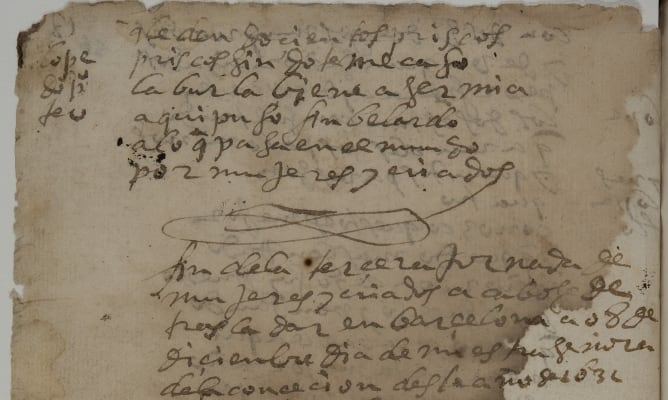 q̃ le deu dozientos priscos
lope priscos sin dote me caso
la burla biene a ser mia
aqui puso fin belardo
a lo q̃ pasa en el mundo
por mujeres y criados
fin de la tercera jornada de
mujeres y criados acabose de
trasladar en barcelona a 08 de
diciembre dia de nuestra señora
de la concecion deste año de 1631